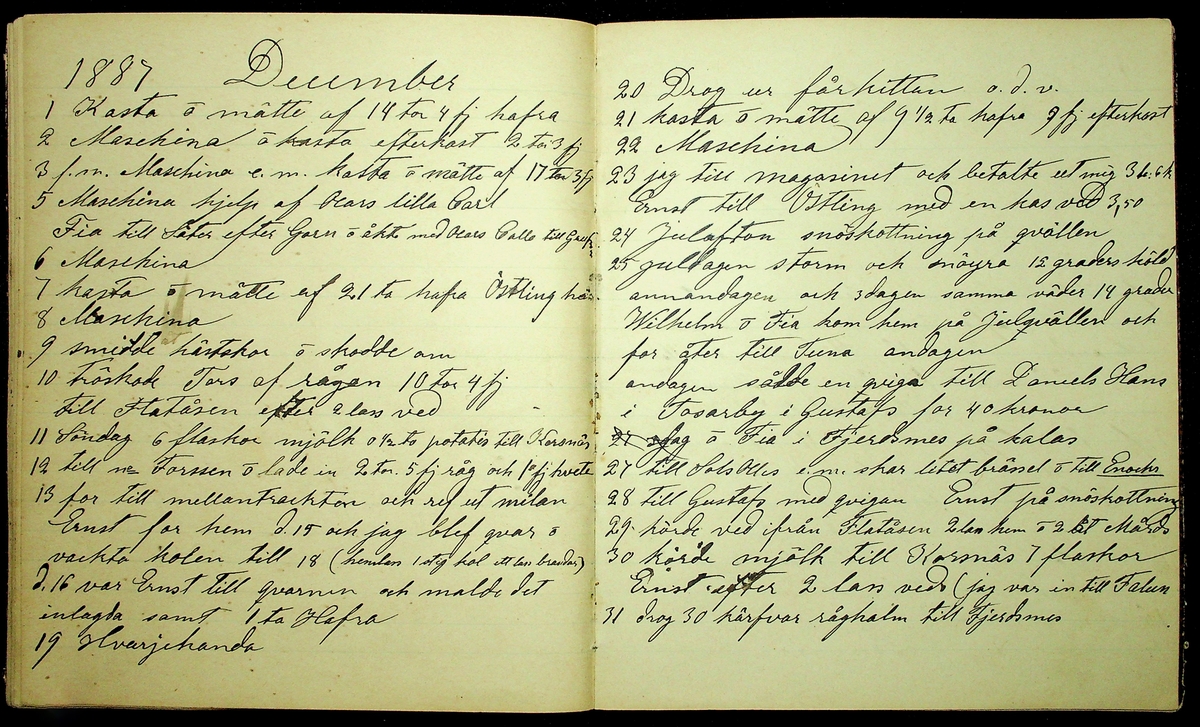 1887 December
1 Kasta ō mätte af 14 tor 4 fj hafra
2 Maschina ō kasta efterkast 2 tor 3 fj
3 f.m. Maschina e.m. kasta ō mätte af 17 tor 3 fj
5 Maschina hjelp af Olars lilla Carl
Fia till Säter efter Garn ō åkte med Olars Calle till
6 Maschina
7 kasta ō mätte af 21 to hafra Östling här
8 Maschina
9 smidde hästskor ō skodde om
10 tröskade Tors af rågan 10 tor 4 fj
till Flatåsen efter 2 lass ved
11 Söndag 6 flaskor mjölk 0 1/2 to potates till Korsnäs
12 till Forssen ō lade in 2 tor. 5 fj råg och 1 fj hvete
13 for till mellantrackten och ref ut milan
Ernst for hem d.15 och jag blef qvar ō
vackta kolen till 18 (hemlan 1 stg kol ett lan brandar)
d.16 var Ernst till qvarnen och malde det
inlagda samt 1 to Hafra
19 Hvarjehanda
20 Drog ur fårkittan o.d.v.
21 kasta ō mätte af 9 1/2 to hafra 9 fj efterkast
22 Maschina
23 jag till magasinet och betalte ut mig 3 to. 6 k
Ernst till Östling med en kas ved 3,50
24 Julafton snöskottning på qvällen
25 juldagen storm och snöyra 12 graders köld
annandagen och 3dagen samma väder 14 grader
Wilhelm ō Fia kom hem på Julqvällen och
for åter till Tuna andagen
andagen sålde en qviga till Daniels Hans
i Tosarby i Gustafs for 40 kronor
27 jag ō Fia i Fjerdsmes på kalas
27 till Sols Olles e.m. skar litet bränsel ō till Enochs
28 till Gustafs med qvigan Ernst på snöskottning
29 körde ved ifrån Flatåsen 2 lan hem ō 2 st Mårds
30 körde mjölk till Korsnäs 7 flaskor
Ernst efter 2 lass ved (jag var in till Falun
31 drog 30 kärfvar råghalm till Fjerdsmes